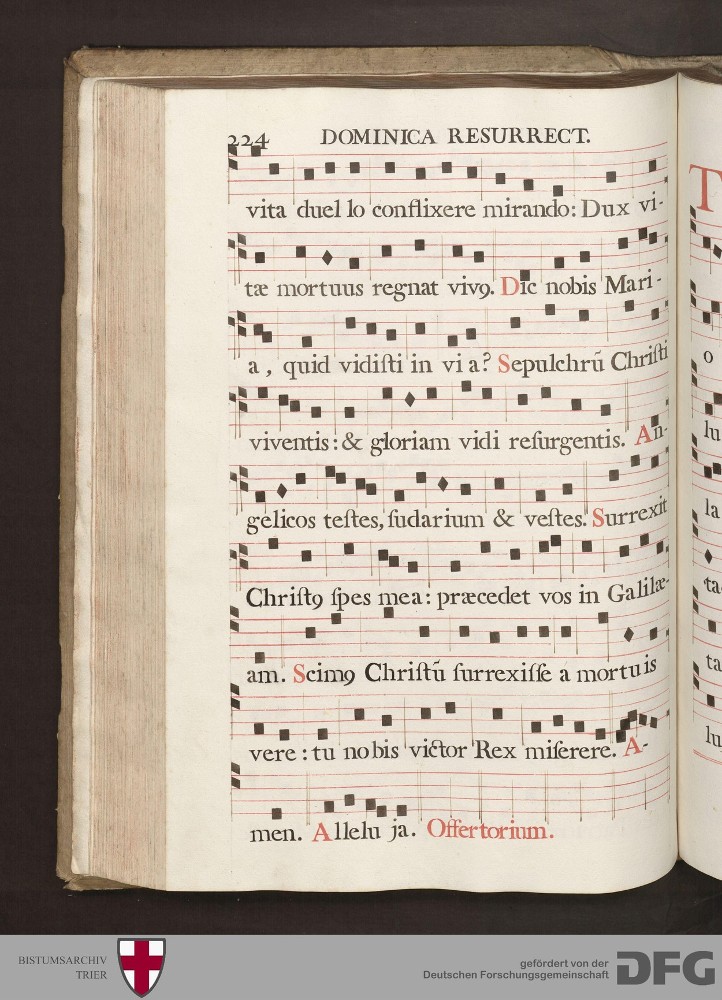 224 DOMINICA RESURRECT.
vita duel lo conflixere mirando: Dux vi-
tæ mortuus regnat viv9. Dic nobis Mari-
a, quid vidiſti in via? Sepulchrū Chriſti
viventis: & gloriam vidi reſurgentis. An-
gelicos teſtes, ſudarium & veſtes. Surrexit
Chriſt9 ſpes mea: præcedet vos in Galilæ-
am. Scim9 Chriſtū ſurrexiſſe a mortuis
vere: tu nobis victor Rex miſerere. A-
men. Allelu ja. Offertorium.
T
o
lu
la
ta
ta
lu
BISTUMSARCHIV
TRIER
gefördert von der
Deutschen Forschungsgemeinschaft
DFG